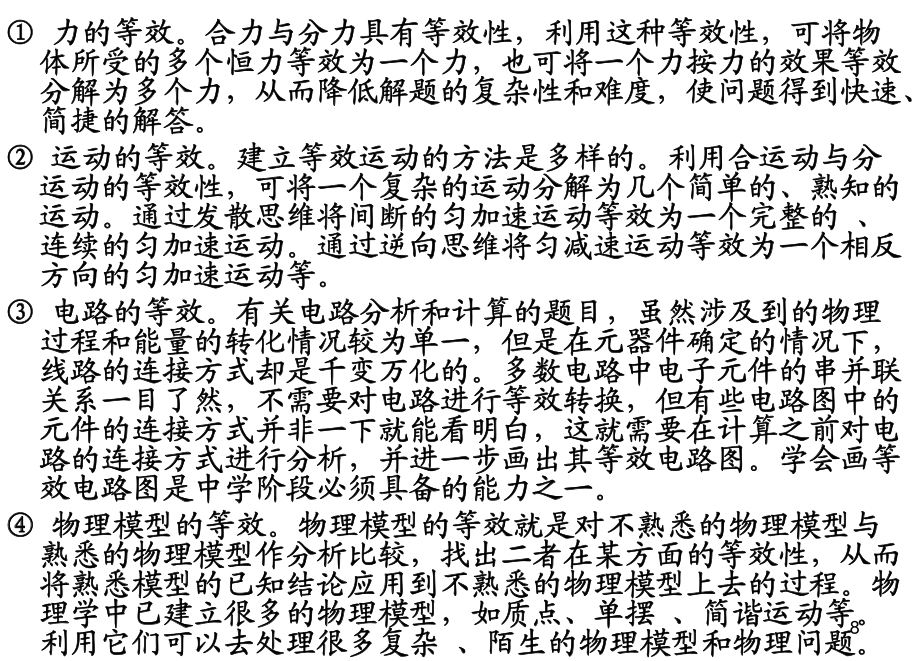 ① 力的等效。合力与分力具有等效性，利用这种等效性，可将物
体所受的多个恒力等效为一个力，也可将一个力按力的效果等效
分解为多个力，从而降低解题的复杂性和难度，使问题得到快速、
简捷的解答。
② 运动的等效。建立等效运动的方法是多样的。利用合运动与分
运动的等效性，可将一个复杂的运动分解为几个简单的、熟知的
运动。通过发散思维将间断的匀加速运动等效为一个完整的 、
连续的匀加速运动。通过逆向思维将匀减速运动等效为一个相反
方向的匀加速运动等。
③ 电路的等效。有关电路分析和计算的题目，虽然涉及到的物理
过程和能量的转化情况较为单一，但是在元器件确定的情况下，
线路的连接方式却是千变万化的。多数电路中电子元件的串并联
关系一目了然，不需要对电路进行等效转换，但有些电路图中的
元件的连接方式并非一下就能看明白，这就需要在计算之前对电
路的连接方式进行分析，并进一步画出其等效电路图。学会画等
效电路图是中学阶段必须具备的能力之一。
④ 物理模型的等效。物理模型的等效就是对不熟悉的物理模型与
熟悉的物理模型作分析比较，找出二者在某方面的等效性，从而
将熟悉模型的已知结论应用到不熟悉的物理模型上去的过程。物
理学中已建立很多的物理模型，如质点、单摆 、简谐运动等。
利用它们可以去处理很多复杂 、陌生的物理模型和物理问题。
8